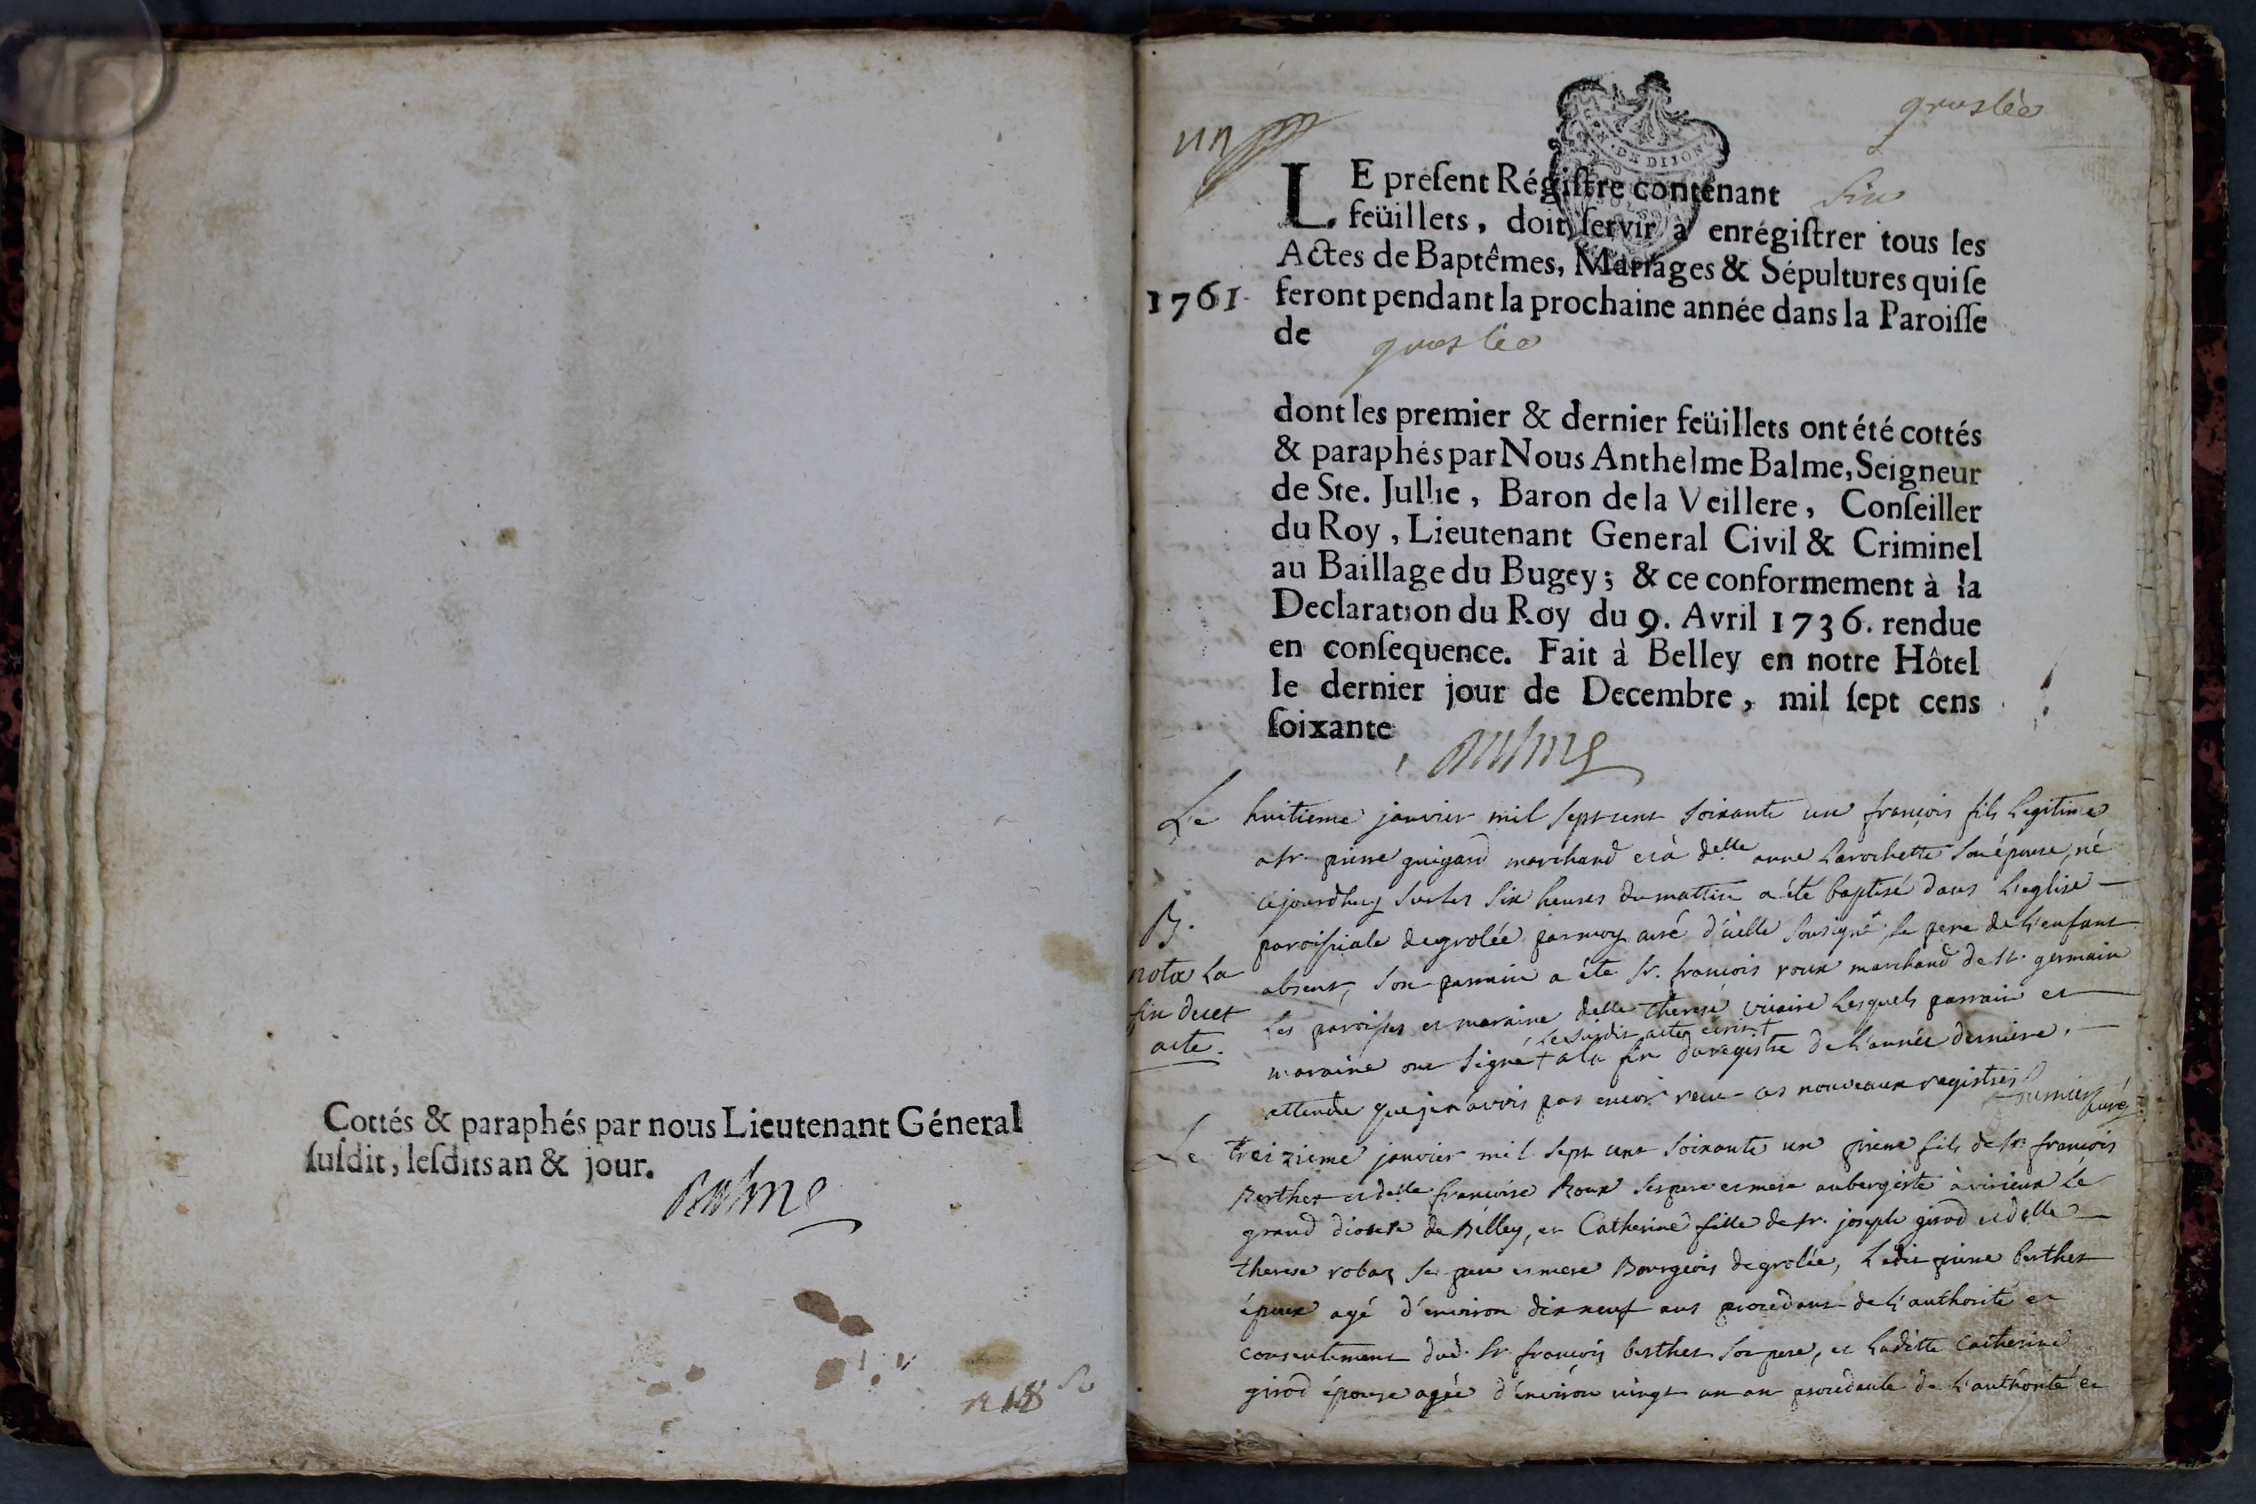 Cottés & paraphés par nous Lieutenant Géneral
ſuſdit, leſdits an & jour.
Balme
un
groslée
GEN. DE DIJON
LE preſent Régiſtre contenant six
feüillets, doit ſervir à enrégiſtrer tous les
Actes de Baptêmes, Mariages & Sépultures qui ſe
1761. feront pendant la prochaine année dans la Paroiſſe
de groslée
dont les premier & dernier feüillets ont été cottés
& paraphés par Nous Anthelme Balme, Seigneur
de Ste. Jullie, Baron de la Veillere, Conſeiller
du Roy, Lieutenant General Civil & Criminel
au Baillage du Bugey; & ce conformement à la
Declaration du Roy du 9. Avril 1736. rendue
en conſequence. Fait à Belley en notre Hôtel
le dernier jour de Decembre, mil ſept cens
ſoixante
Balme
Le huitieme janvier mil sept cent soixante un françois fils legitime
a sr. pierre guigard marchand et à delle anne Larochette son épouse, né
ajourdhuy sur les six heures du mattin a été baptisé dans L'eglise
B.
paroissiale de grolée par moy curé d'icelle sousigné le pere de L'enfant
nota La
absent, son parrain a été sr. françois roux marchand de st. germain
fin de cet
Les paroisses et maraine delle therese vicaire Lesquels parrain et
acte.
Le susdit acte ecrit +
maraine ont signé + a la fin du registre de L'année derniere.
attendu que je n'avois pas encor receu ces nouveaux registres
fournier curé
Le treizieme janvier mil sept cent soixante un pierre fils de sr. françois
Berthet et delle françoise Roux ses pere et mere aubergiste à virieux Le
grand diocese de Belley, et Catherine fille de sr. joseph girod et delle
therese robaz ses pere et mere Bourgeois de grolée, Ledit pierre berthet
époux agé d'environ dix neuf ans procedant de L'authorité et
consentement dud. sr. françois berthet son pere, et Laditte Catherine
girod épouse agée d'environ vingt un an procedante de L'authorité et